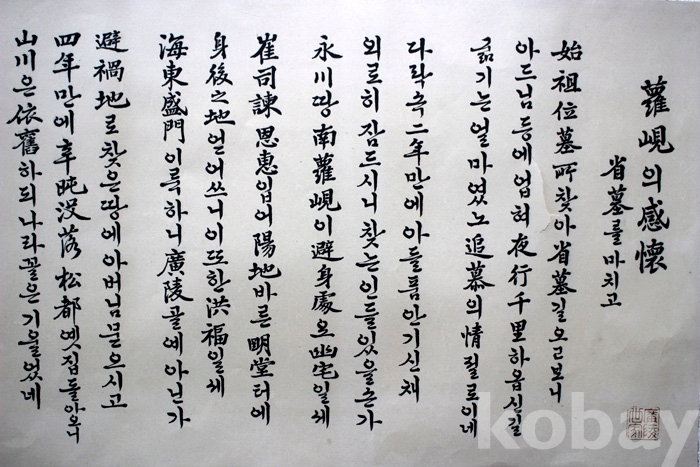 蘿峴의 感懷
省墓를 마치고
始祖位墓所찾아 省墓길오고보니
아드님등에업혀 夜行千里하옵신길
굶기는얼마였노 追慕의情절로이네
다락속二年만에 아들품안기신채
외로히잠드시니 찾는인들있을손가
永川땅南蘿峴이 避身處요幽宅일세
崔司諫恩惠입어 陽地바른明堂터에
身後之地얻어쓰니 이또한洪福일세
海東盛門이룩하니 廣陵골예아닌가
避禍地로찾은땅에 아버님묻으시고
四年만에辛旽没落 松都옛집돌아오니
山川은依舊하되 나라꼴은기울었네
kobay